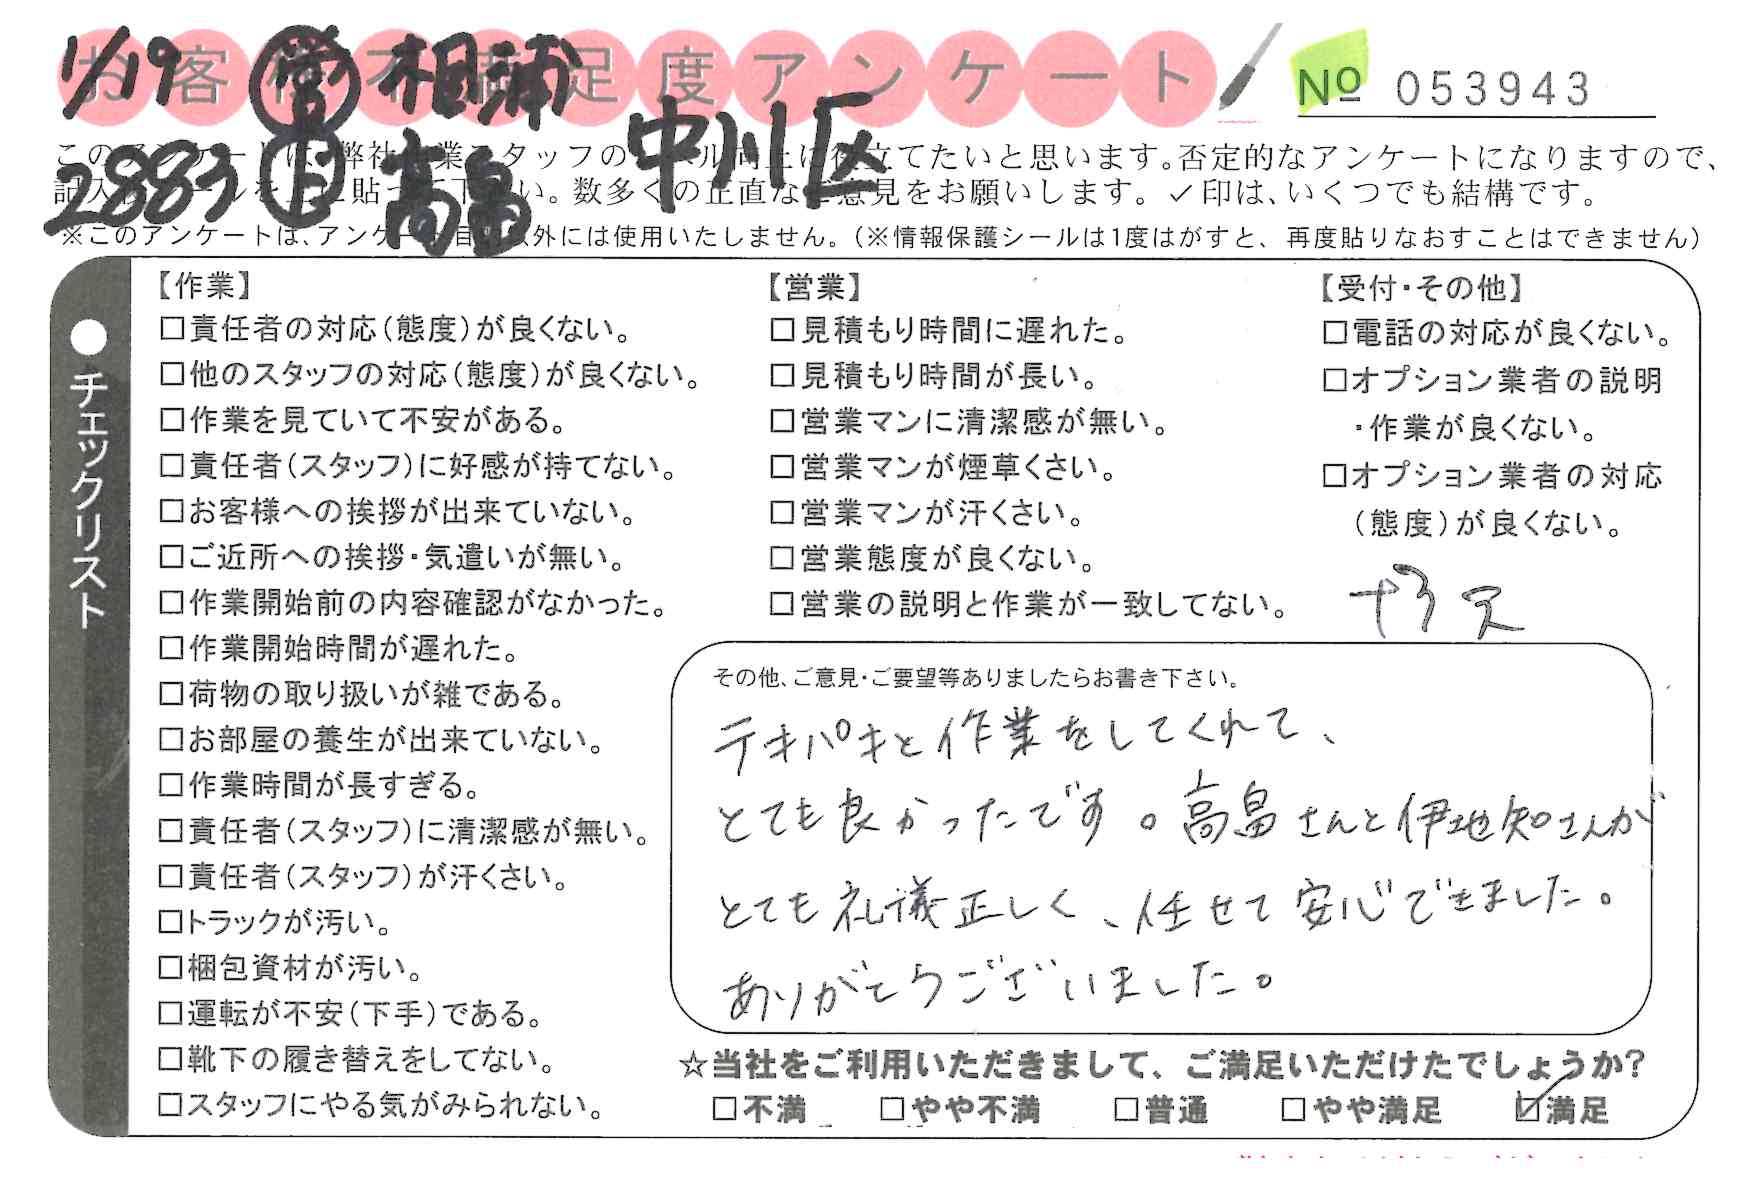 お客様不満足度アンケート
No 053943
1/19 営 相浦
2883 日 高畠 中川区
このアンケートは、弊社 業スタッフの ベル向上に役立てたいと思います。否定的なアンケートになりますので、
記入 ールを上に貼って下さい。数多くの正直なご意見をお願いします。✓印は、いくつでも結構です。
※このアンケートは、アンケート目的以外には使用いたしません。(※情報保護シールは1度はがすと、再度貼りなおすことはできません)
●チェックリスト
【作業】
□責任者の対応(態度)が良くない。
□他のスタッフの対応(態度)が良くない。
□作業を見ていて不安がある。
□責任者(スタッフ)に好感が持てない。
□お客様への挨拶が出来ていない。
□ご近所への挨拶・気遣いが無い。
□作業開始前の内容確認がなかった。
□作業開始時間が遅れた。
□荷物の取り扱いが雑である。
□お部屋の養生が出来ていない。
□作業時間が長すぎる。
□責任者(スタッフ)に清潔感が無い。
□責任者(スタッフ)が汗くさい。
□トラックが汚い。
□梱包資材が汚い。
□運転が不安(下手)である。
□靴下の履き替えをしてない。
□スタッフにやる気がみられない。
【営業】
□見積もり時間に遅れた。
□見積もり時間が長い。
□営業マンに清潔感が無い。
□営業マンが煙草くさい。
□営業マンが汗くさい。
□営業態度が良くない。
□営業の説明と作業が一致してない。
【受付・その他】
□電話の対応が良くない。
□オプション業者の説明
・作業が良くない。
□オプション業者の対応
(態度)が良くない。
その他、ご意見・ご要望等ありましたらお書き下さい。
テキパキと作業をしてくれて、
とても良かったです。高畠さんと伊地知さんが
とても礼儀正しく、任せて安心できました。
ありがとうございました。
☆当社をご利用いただきまして、ご満足いただけたでしょうか?
□不満 □やや不満 □普通 □やや満足 ☑満足